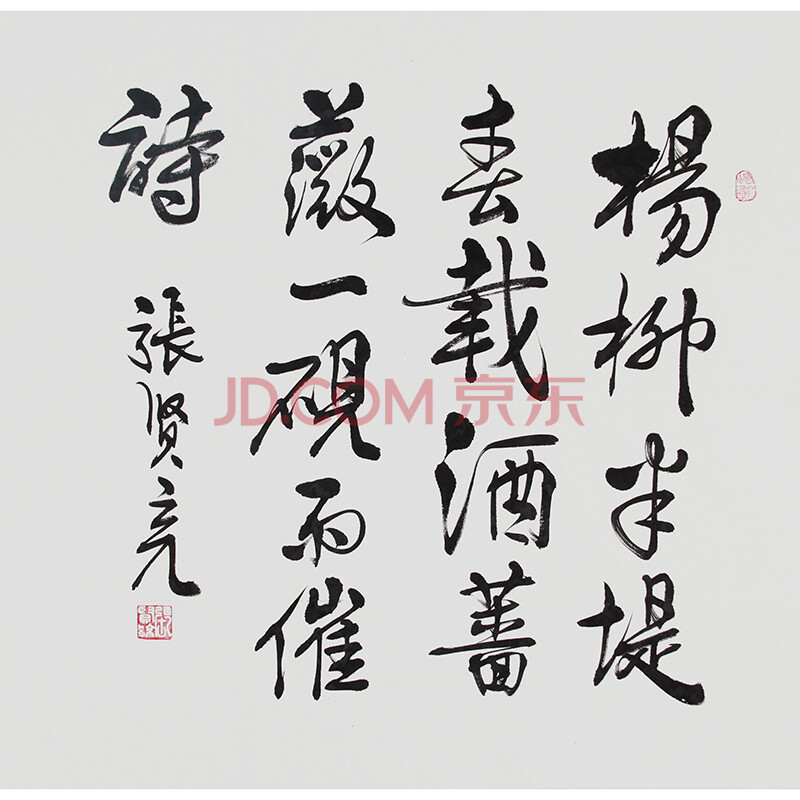 楊柳半堤
春載酒薔
薇一硯雨催
詩
張贤亮
JD.COM 京东